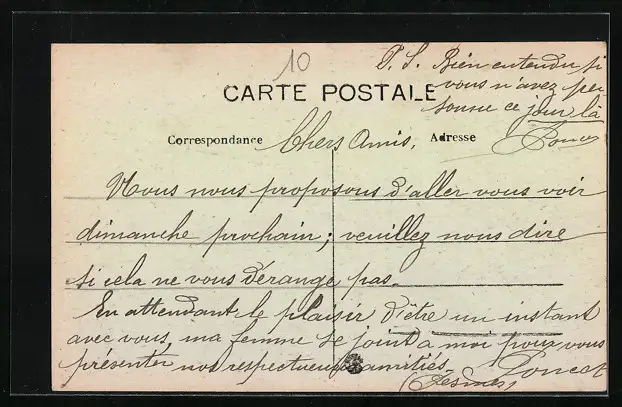 10
P. S. Bien entendu si
vous n'avez per
sonne ce jour là
Poncet
CARTE POSTALE
Correspondance
Adresse
Chers Amis,
Nous nous proposons d'aller vous voir
dimanche prochain; veuillez nous dire
si cela ne vous dérange pas.
En attendant le plaisir d'être un instant
avec vous, ma femme se joint à moi pour vous
présenter nos respectueuses amitiés.
Poncet